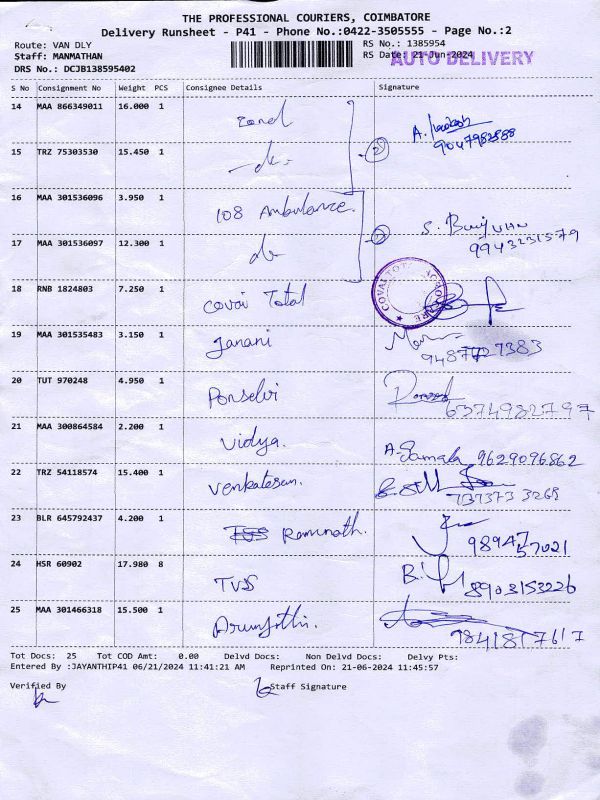 THE PROFESSIONAL COURIERS, COIMBATORE
Delivery Runsheet - P41 - Phone No.:0422-3505555 - Page No.:2
Route: VAN DLY
RS No.: 1385954
Staff: MANMATHAN
RS Date: 21-Jun-2024
AUTO DELIVERY
DRS No.: DCJB138595402
S No Consignment No Weight PCS Consignee Details Signature
14 MAA 866349011 16.000 1
9047982888
15 TRZ 75303530 15.450 1
16 MAA 301536096 3.950 1 108 Ambulance.
17 MAA 301536097 12.300 1 9943231579
18 RNB 1824803 7.250 1 Covai Total
COVAI
19 MAA 301535483 3.150 1 Janani
7383
20 TUT 970248 4.950 1 Ponselvi 6374982797
21 MAA 300864584 2.200 1 Vidya. A. 9629096862
22 TRZ 54118574 15.400 1 Venkatesan. 737373 3268
23 BLR 645792437 4.200 1 Ramnath. 98947
57021
24 HSR 60902 17.980 8 TVS 8903153226
25 MAA 301466318 15.500 1 Arunjothi. 9841817617
Tot Docs: 25 Tot COD Amt: 0.00 Delvd Docs: Non Delvd Docs: Delvy Pts:
Entered By :JAYANTHIP41 06/21/2024 11:41:21 AM Reprinted On: 21-06-2024 11:45:57
Verified By Staff Signature